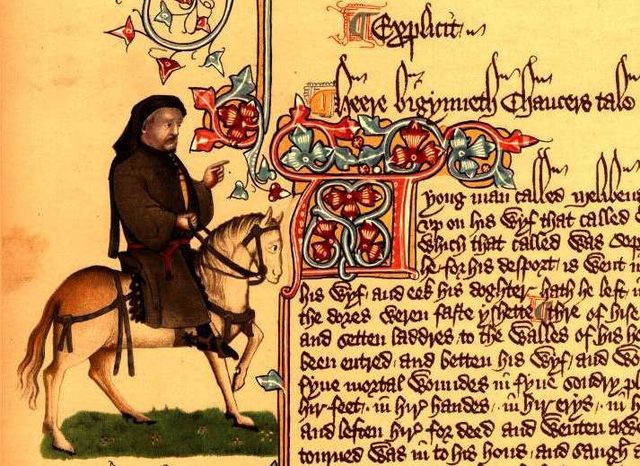 Explicit
Heere bigynneth Chaucers tale
A yong man called
vp on his Wyf that called
Which that called Was Sop
he for his desport is Went
his Wyf and eek his doghter hath he left
the dores Weren faste yshette Thre of hise
and setten laddres to the Walles of his
been entred and betten his Wyf and
fyue mortal Woundes in fyue sondry
hir feet in hir handes in hir erys in
and leften hir for deed and Wenten
tourned Was in to his hous and saugh